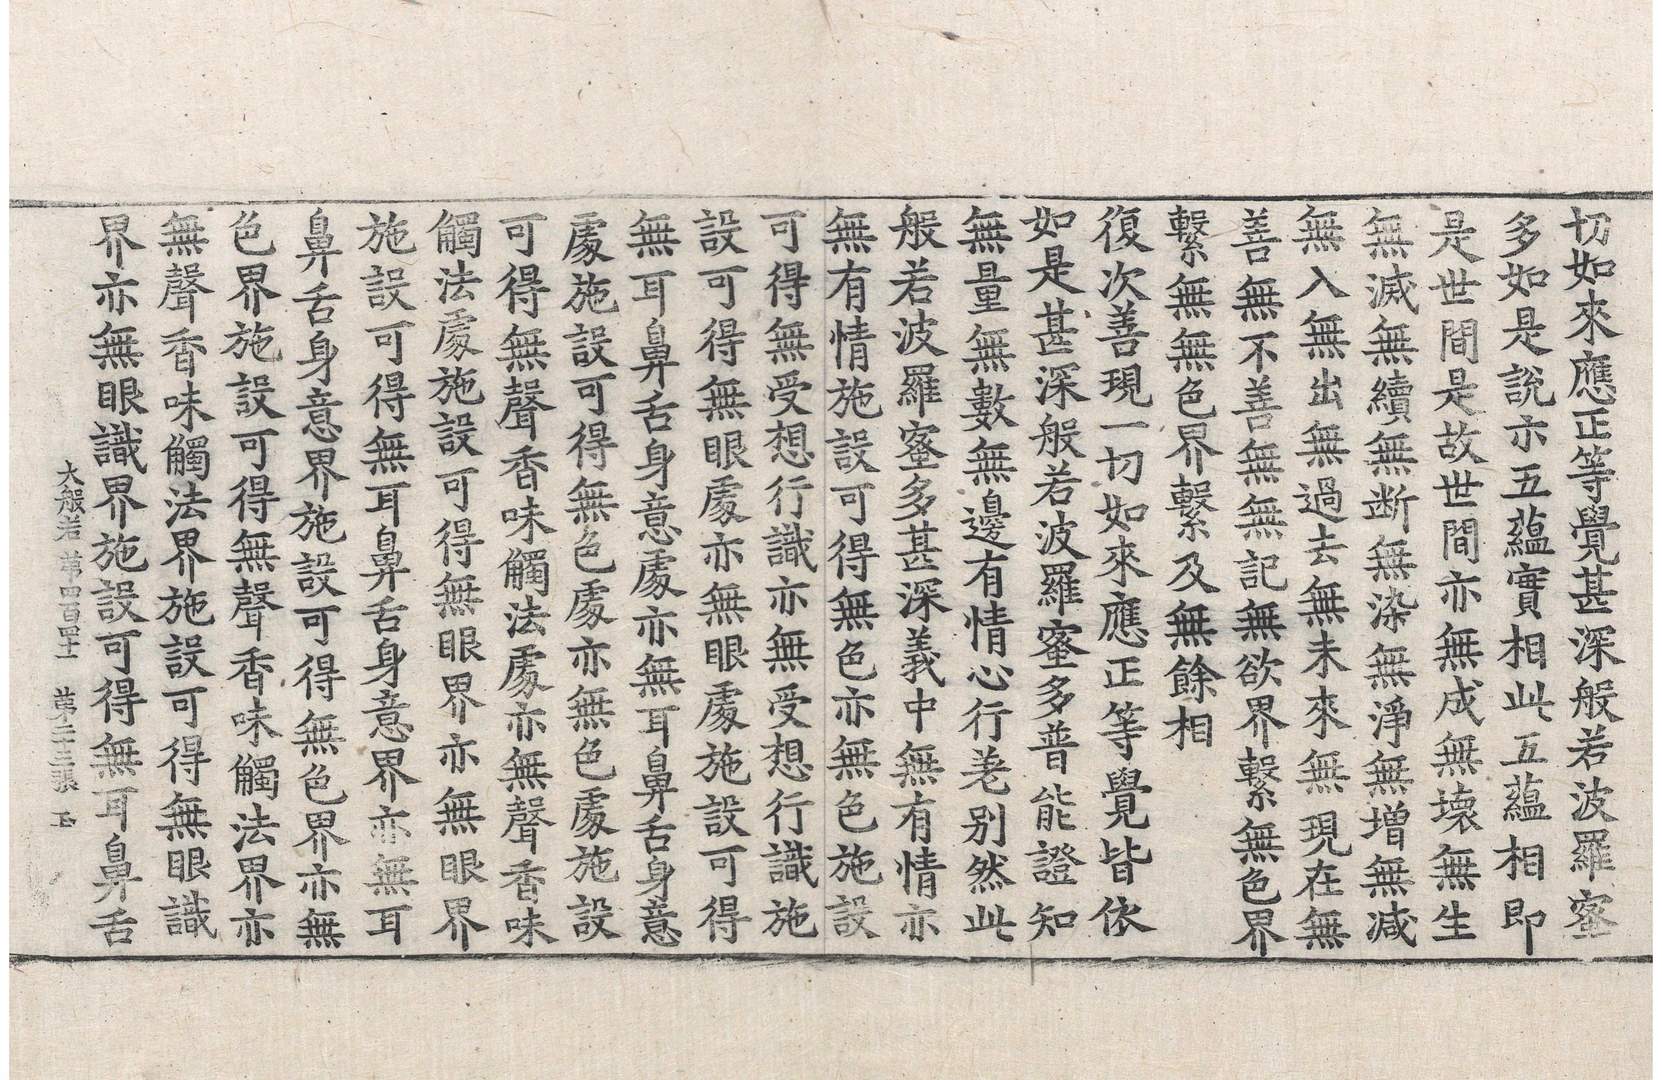 切如來應正等覺甚深般若波羅蜜
多如是說示五蘊實相此五蘊相即
是世間是故世間亦無成無壞無生
無滅無續無断無染無淨無增無減
無入無出無過去無未來無現在無
善無不善無無記無欲界繫無色界
繫無無色界繫及無餘相
復次善現一切如來應正等覺皆依
如是甚深般若波羅蜜多普能證知
無量無數無邊有情心行差別然此
般若波羅蜜多甚深義中無有情亦
無有情施設可得無色亦無色施設
可得無受想行識亦無受想行識施
設可得無眼處亦無眼處施設可得
無耳鼻舌身意處亦無耳鼻舌身意
處施設可得無色處亦無色處施設
可得無聲香味觸法處亦無聲香味
觸法處施設可得無眼界亦無眼界
施設可得無耳鼻舌身意界亦無耳
鼻舌身意界施設可得無色界亦無
色界施設可得無聲香味觸法界亦
無聲香味觸法界施設可得無眼識
界亦無眼識界施設可得無耳鼻舌
大般若 第四百四十一 第二十三張